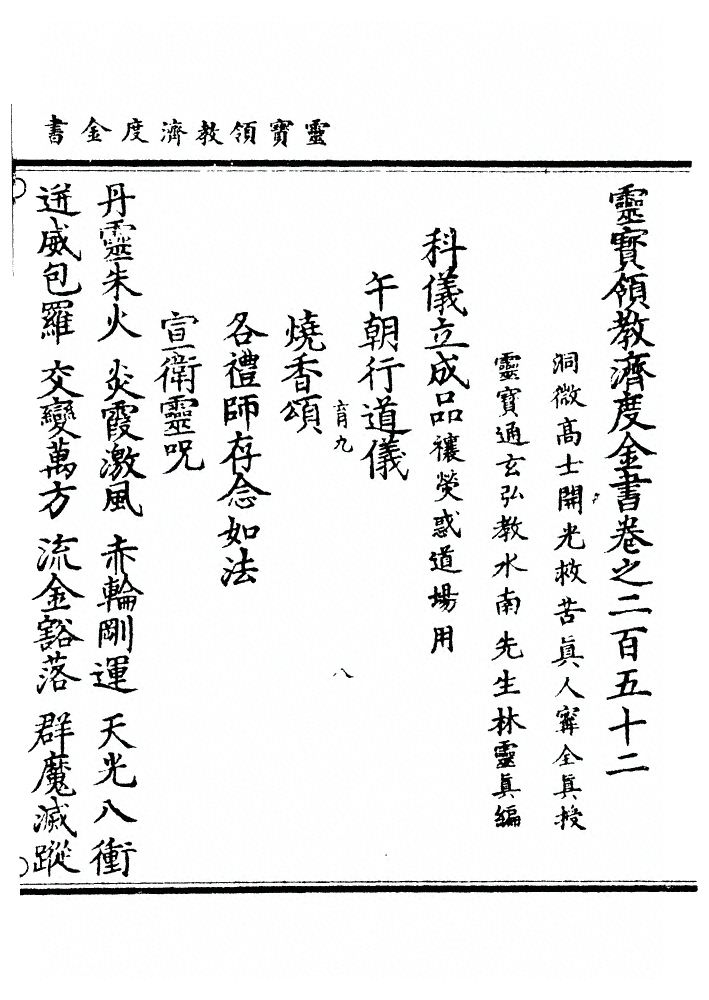 靈寶領教濟度金書
靈寳領教濟度金書卷之二百五十二
洞微高士開光救苦眞人寗全眞授
靈寳通玄弘教水南先生林靈眞編
科儀立成品禳熒惑道場用
午朝行道儀
育九
八
燒香頌
各禮師存念如法
宣衛靈呪
丹靈朱火 炎霞激風 赤輪剛運 天光八衝
迸威包羅 交變萬方 流金豁落 群魔滅蹤